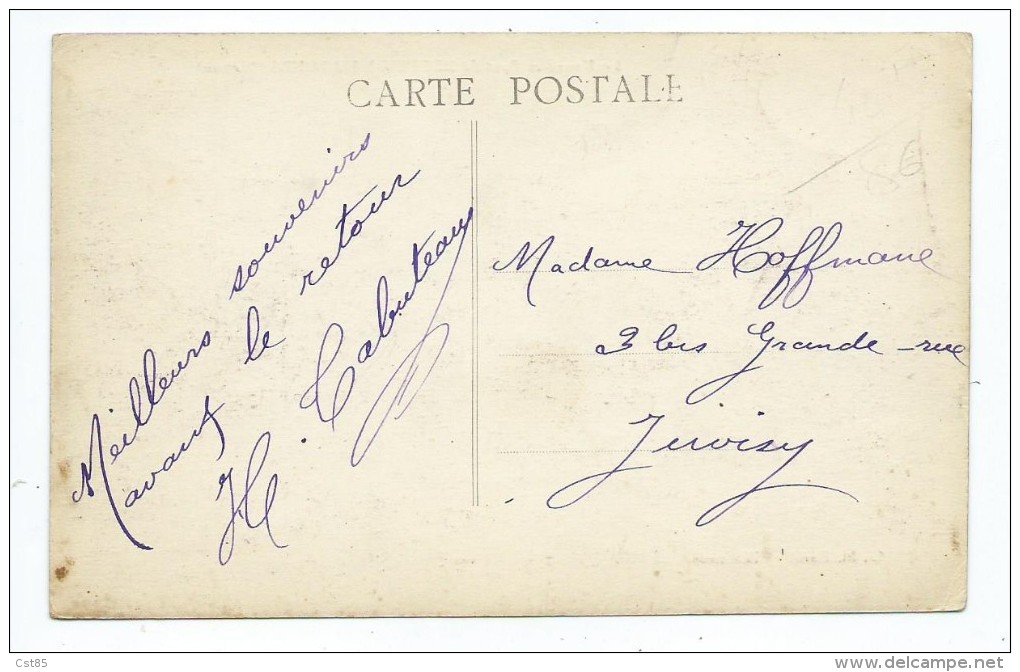 CARTE POSTALE
Meilleurs souvenirs
avant le retour
H. Cabuteau
86
Madame Hoffmane
3 bis Grande-rue
Juvisy
Cst85
www.delcampe.net